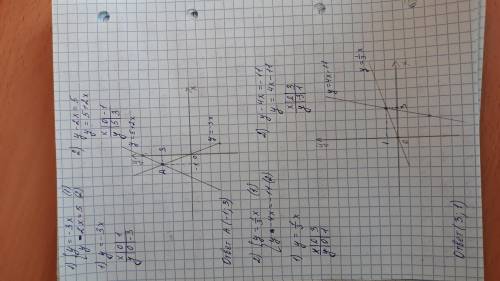 1) { y = -3x (1)
{ y - 2x = 5 (2)
1) y = -3x
x | 0 | 1
y | 0 | -3
2) y - 2x = 5
y = 5 + 2x
x | 0 | -1
y | 5 | 3
y = 5+2x
y = -3x
A
3
-1
0
x
Ответ A (-1; 3)
2) { y = 1/3 x (1)
{ y - 4x = -11 (2)
1) y = 1/3 x
x | 0 | 3
y | 0 | 1
2) y - 4x = -11
y = 4x - 11
x | 2 | 3
y | -3 | 1
y = 4x-11
y = 1/3 x
1
0
3
x
Ответ (3; 1)